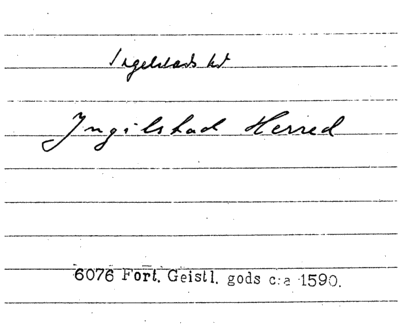 Ingelstads hd
Jngilstad Herred
6076 Fört. Geistl. gods c:a 1590.